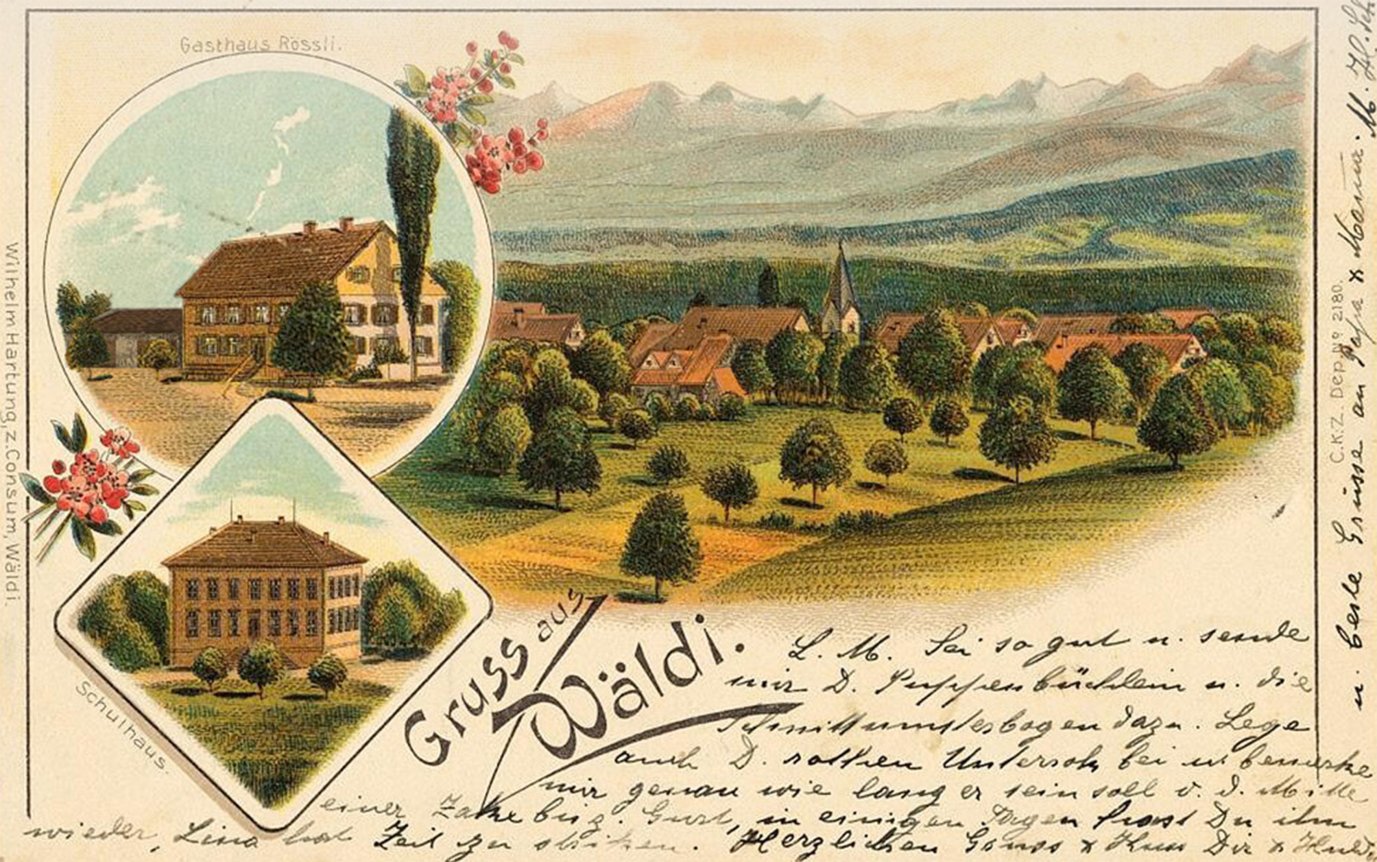 Gasthaus Rössli.
Wilhelm Hartung, z. Consum, Wäldi.
Schulhaus.
Gruss aus
Wäldi.
C.K.Z. Dep. No 2180.
L. M. Sei so gut u. sende
mir D. Puppenbüchlein u. die
Schnittmusterbogen dazu. Lege
auch D. rothen Unterrok bei u bemerke
mir genau wie lang er sein soll v. d. Mitte
einer Zake bis z. Gurt, in einigen Tagen hast Du ihn
wieder, Lina hat Zeit zu striken. Herzlichen Gruss & Kuss Dir &
u. beste Grüsse an Papa & Mama. M. H.